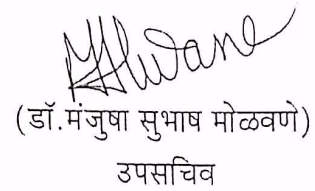 (डॉ.मंजुषा सुभाष मोळवणे)
उपसचिव